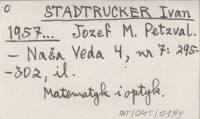 o STADTRUCKER Ivan
1957... Jozef M. Petzval.
– Naša Veda 4, nr 7: 295-
-302, il.
Matematyk i optyk.